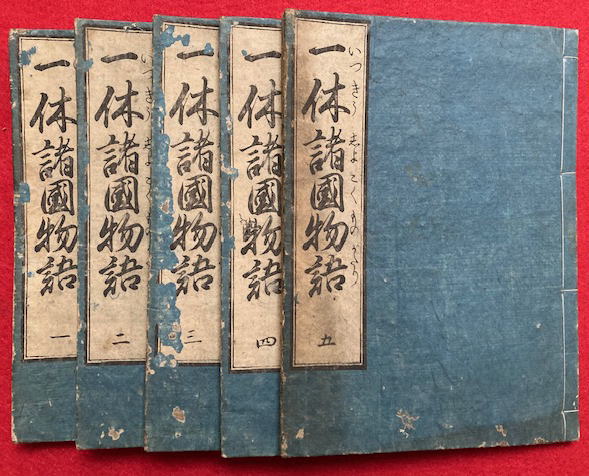 一休諸國物語 一
一休諸國物語 二
一休諸國物語 三
一休諸國物語 四
一休諸國物語 五
いつきう しよこくものがたり